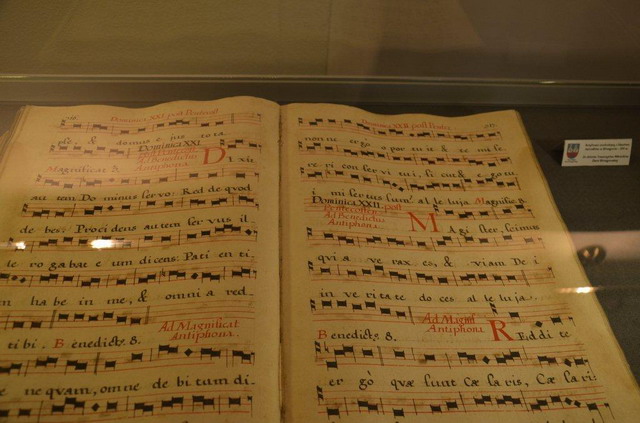 Dominica XXI. post Pentecost
pse, & domus ejus tota.
Dominica XXI.
Ad Benedictus
Antiphona.
Magnificat 8.
D I xit
autem Dominus servo: Redde quod
debes. Procidens autem servus il
le rogabat eum dicens: Patienti
am habe in me, & omnia red
tibi. Benedictus 8.
Ad Magnificat
Antiphona.
ne nequam, omne debitum di
Dominica XXII. post Pente
non ne
te mise
reri conservi tui, sicut & ego tu
i misertus sum? alleluja. Magnific 8.
Dominica XXII. post
Pentecosten
Ad Benedictus
Antiphona
M Agister, scimus
quia verax es, & viam Dei
in veritate doces alleluja.
Benedictus 8.
Ad Magnif
Antiphona.
R Eddite
ergò quæ sunt Cæsaris, Cæsari: